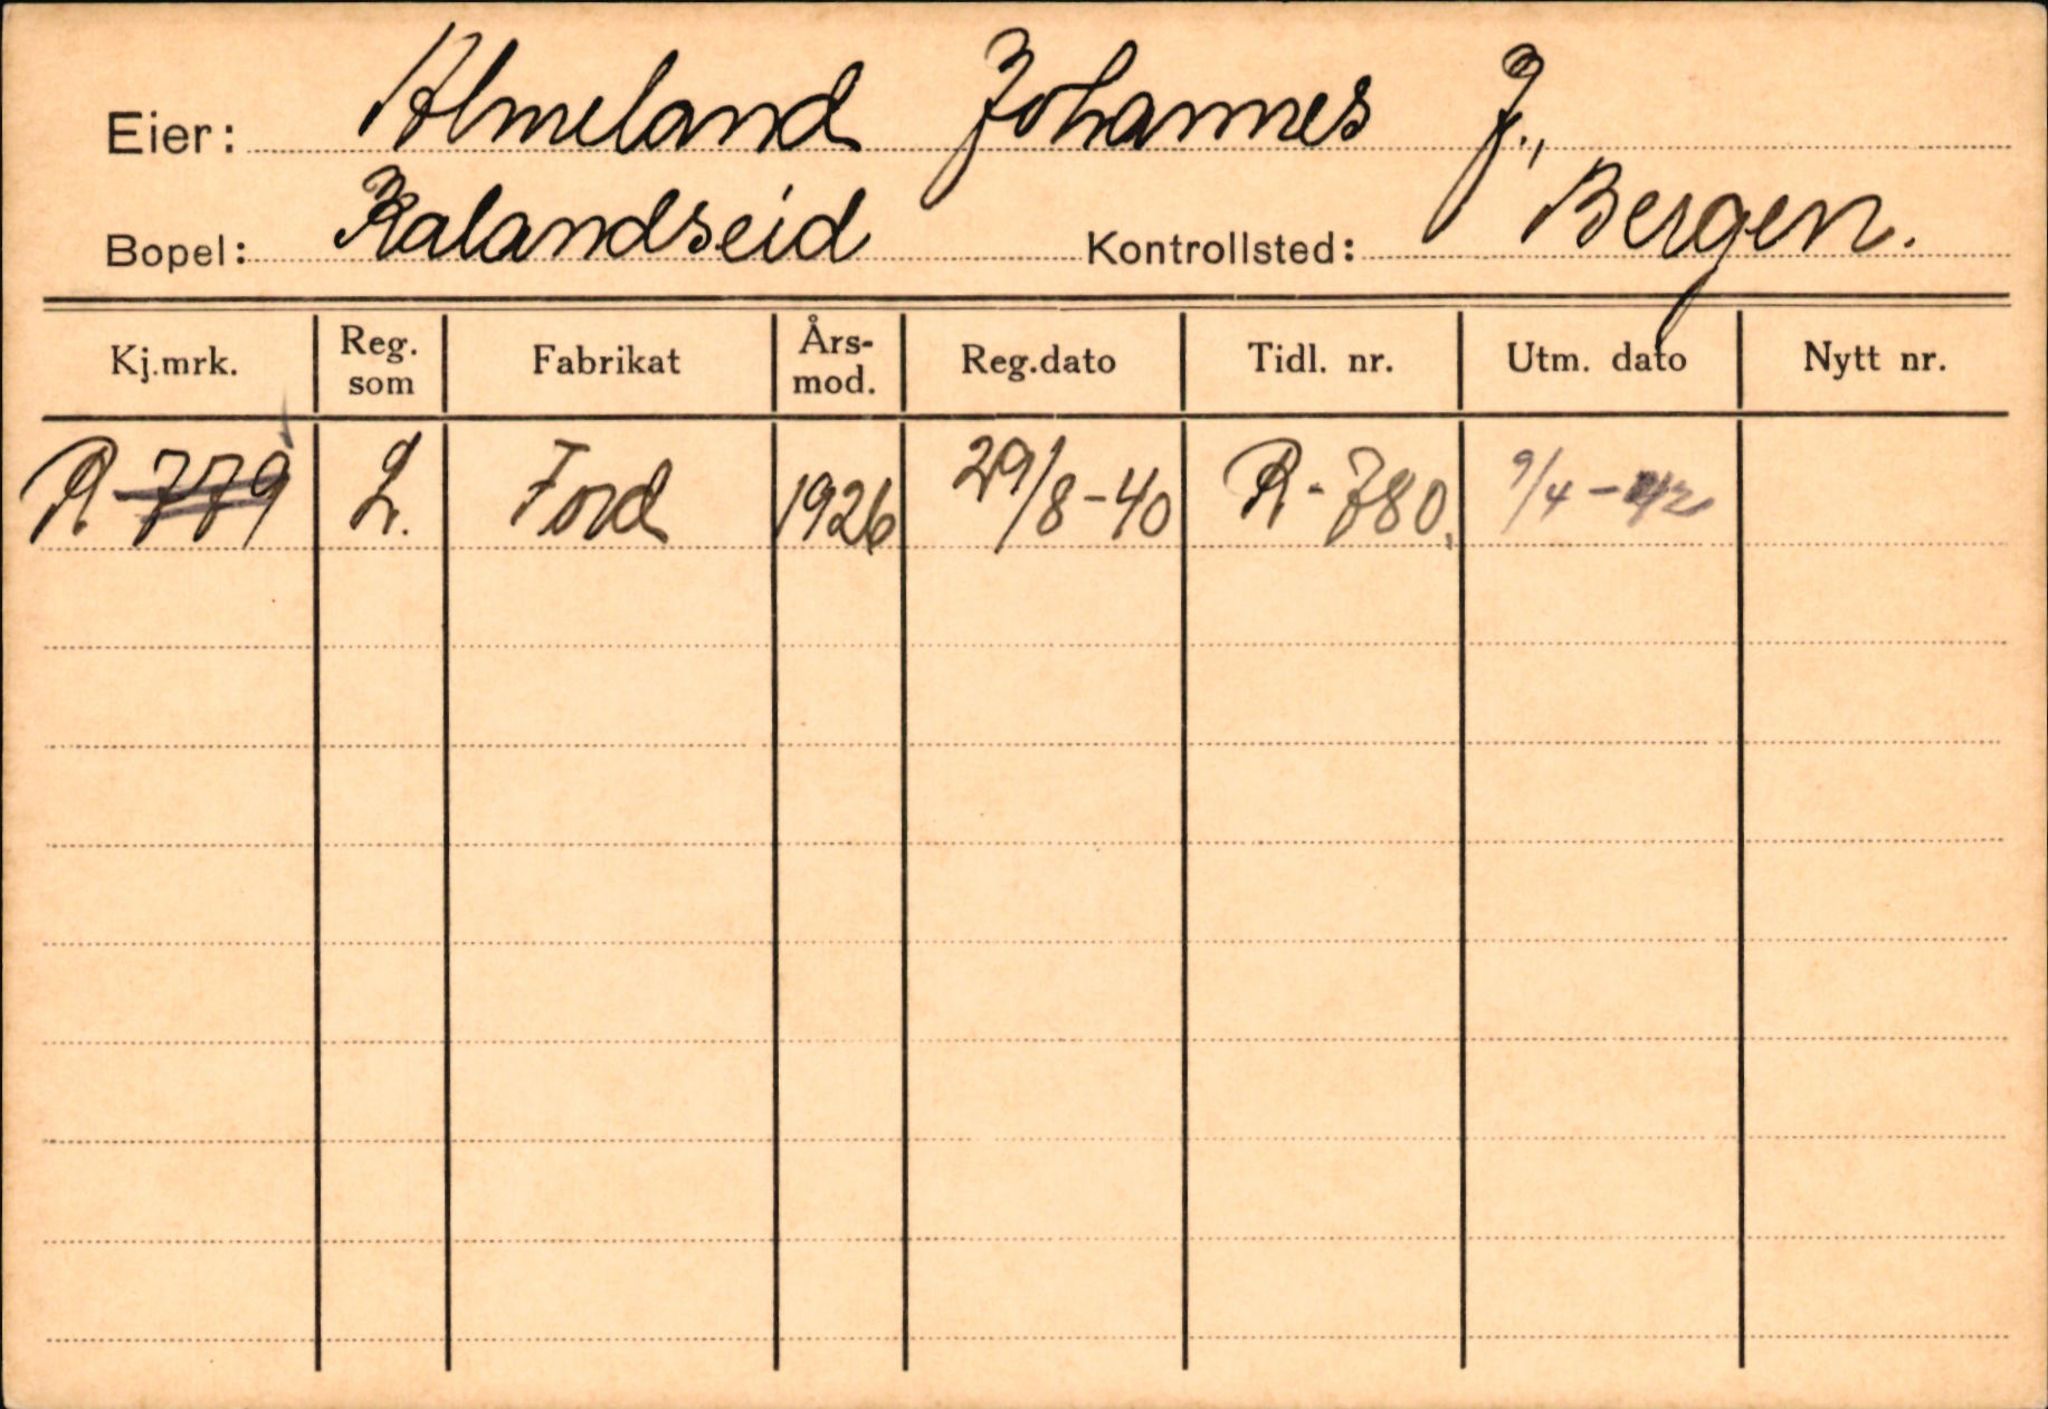 Eier: Almeland Johannes J.,
Bopel: Kalandseid Kontrollsted: Bergen.
Kj.mrk. Reg. som Fabrikat Års- mod. Reg.dato Tidl. nr. Utm. dato Nytt nr.
R-779 L. Ford 1926 29/8-40 R-780. 9/4-42